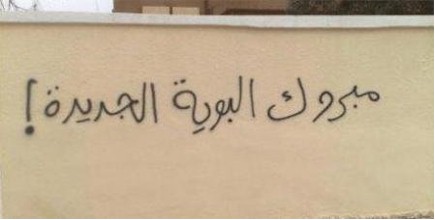 مبروك البوية الجديدة!